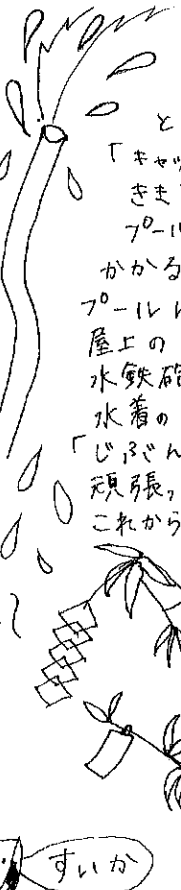 と
「キャッ
きま
プール
かかる
プール
屋上の
水鉄砲
水着の
「じぶん
頑張っ
これから
すいか